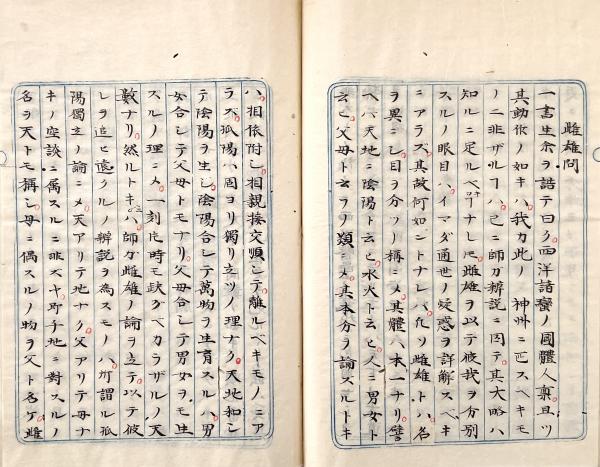 雌雄問
一書生余ヲ詰テ曰ク西洋諸蠻ノ國體人禀且ツ
其動作ノ如キハ我カ此ノ　神州ニ匹スベキモ
ノニ非ザルヿハ已ニ師ガ辨説ニ因テ其大略ハ
知ルニ足ルベケレ𪜈雌雄ヲ以テ彼我ヲ分別
スルノ眼目ハイマダ通世ノ疑惑ヲ詳解スベキ
ニアラズ其故何如ントナレバ凡ソ雌雄トハ名
ヲ異ニシ目ヲ分ツノ稱ニメ其體ハ本一ナリ譬
ヘバ天地ニ陰陽ト云ヒ水火ト云ヒ人ニ男女ト
云ヒ父母ト云ヲノ類ニメ其本分ヲ論スルトキ
ハ相依附シ相親接交順シテ離ルベキモノニア
ラズ孤陽ハ固ヨリ獨リ立ツノ理ナク天地和シ
テ陰陽ヲ生シ陰陽合シテ萬物ヲ生育スルハ男
女合シテ父母トモナリ父母合シテ男女ヲモ生
スルノ理ニメ一刻片時モ缺クベカラザルノ天
數ナリ然ルトキハ師ガ雌雄ノ論ヲ立テ以テ彼
レヲ追ヒ遠クルノ辨説ヲ為スモノハ所謂ル孤
陽獨立ノ論ニメ天アリテ地ナク父アリテ母ナ
キノ座談ニ属スルニ非スヤ所乎地ニ對スルノ
名ヲ天トモ稱シ母ニ偶スルノ物ヲ父ト名ケ雌